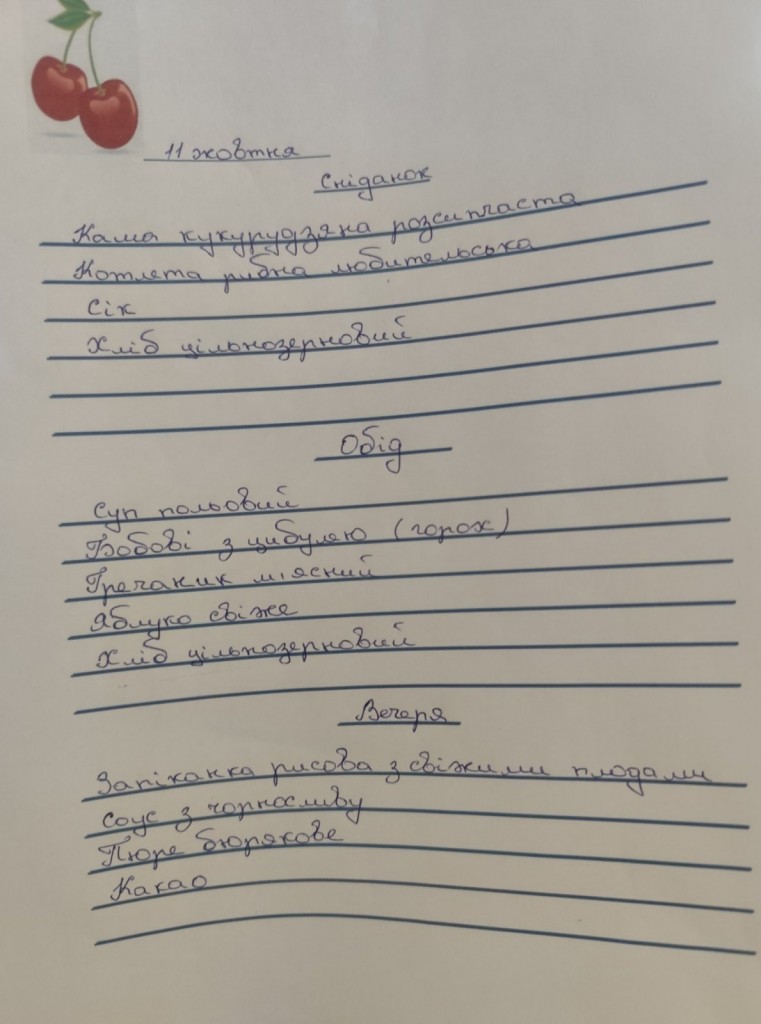 11 жовтня
Сніданок
Каша кукурудзяна розсипчаста
Котлета рибна любительська
Сік
Хліб цільнозерновий
Обід
Суп польовий
Бобові з цибулею (горох)
Гречаник м'ясний
Яблуко свіже
Хліб цільнозерновий
Вечеря
Запіканка рисова з свіжими плодами
Соус з чорносливу
Пюре бурякове
Какао